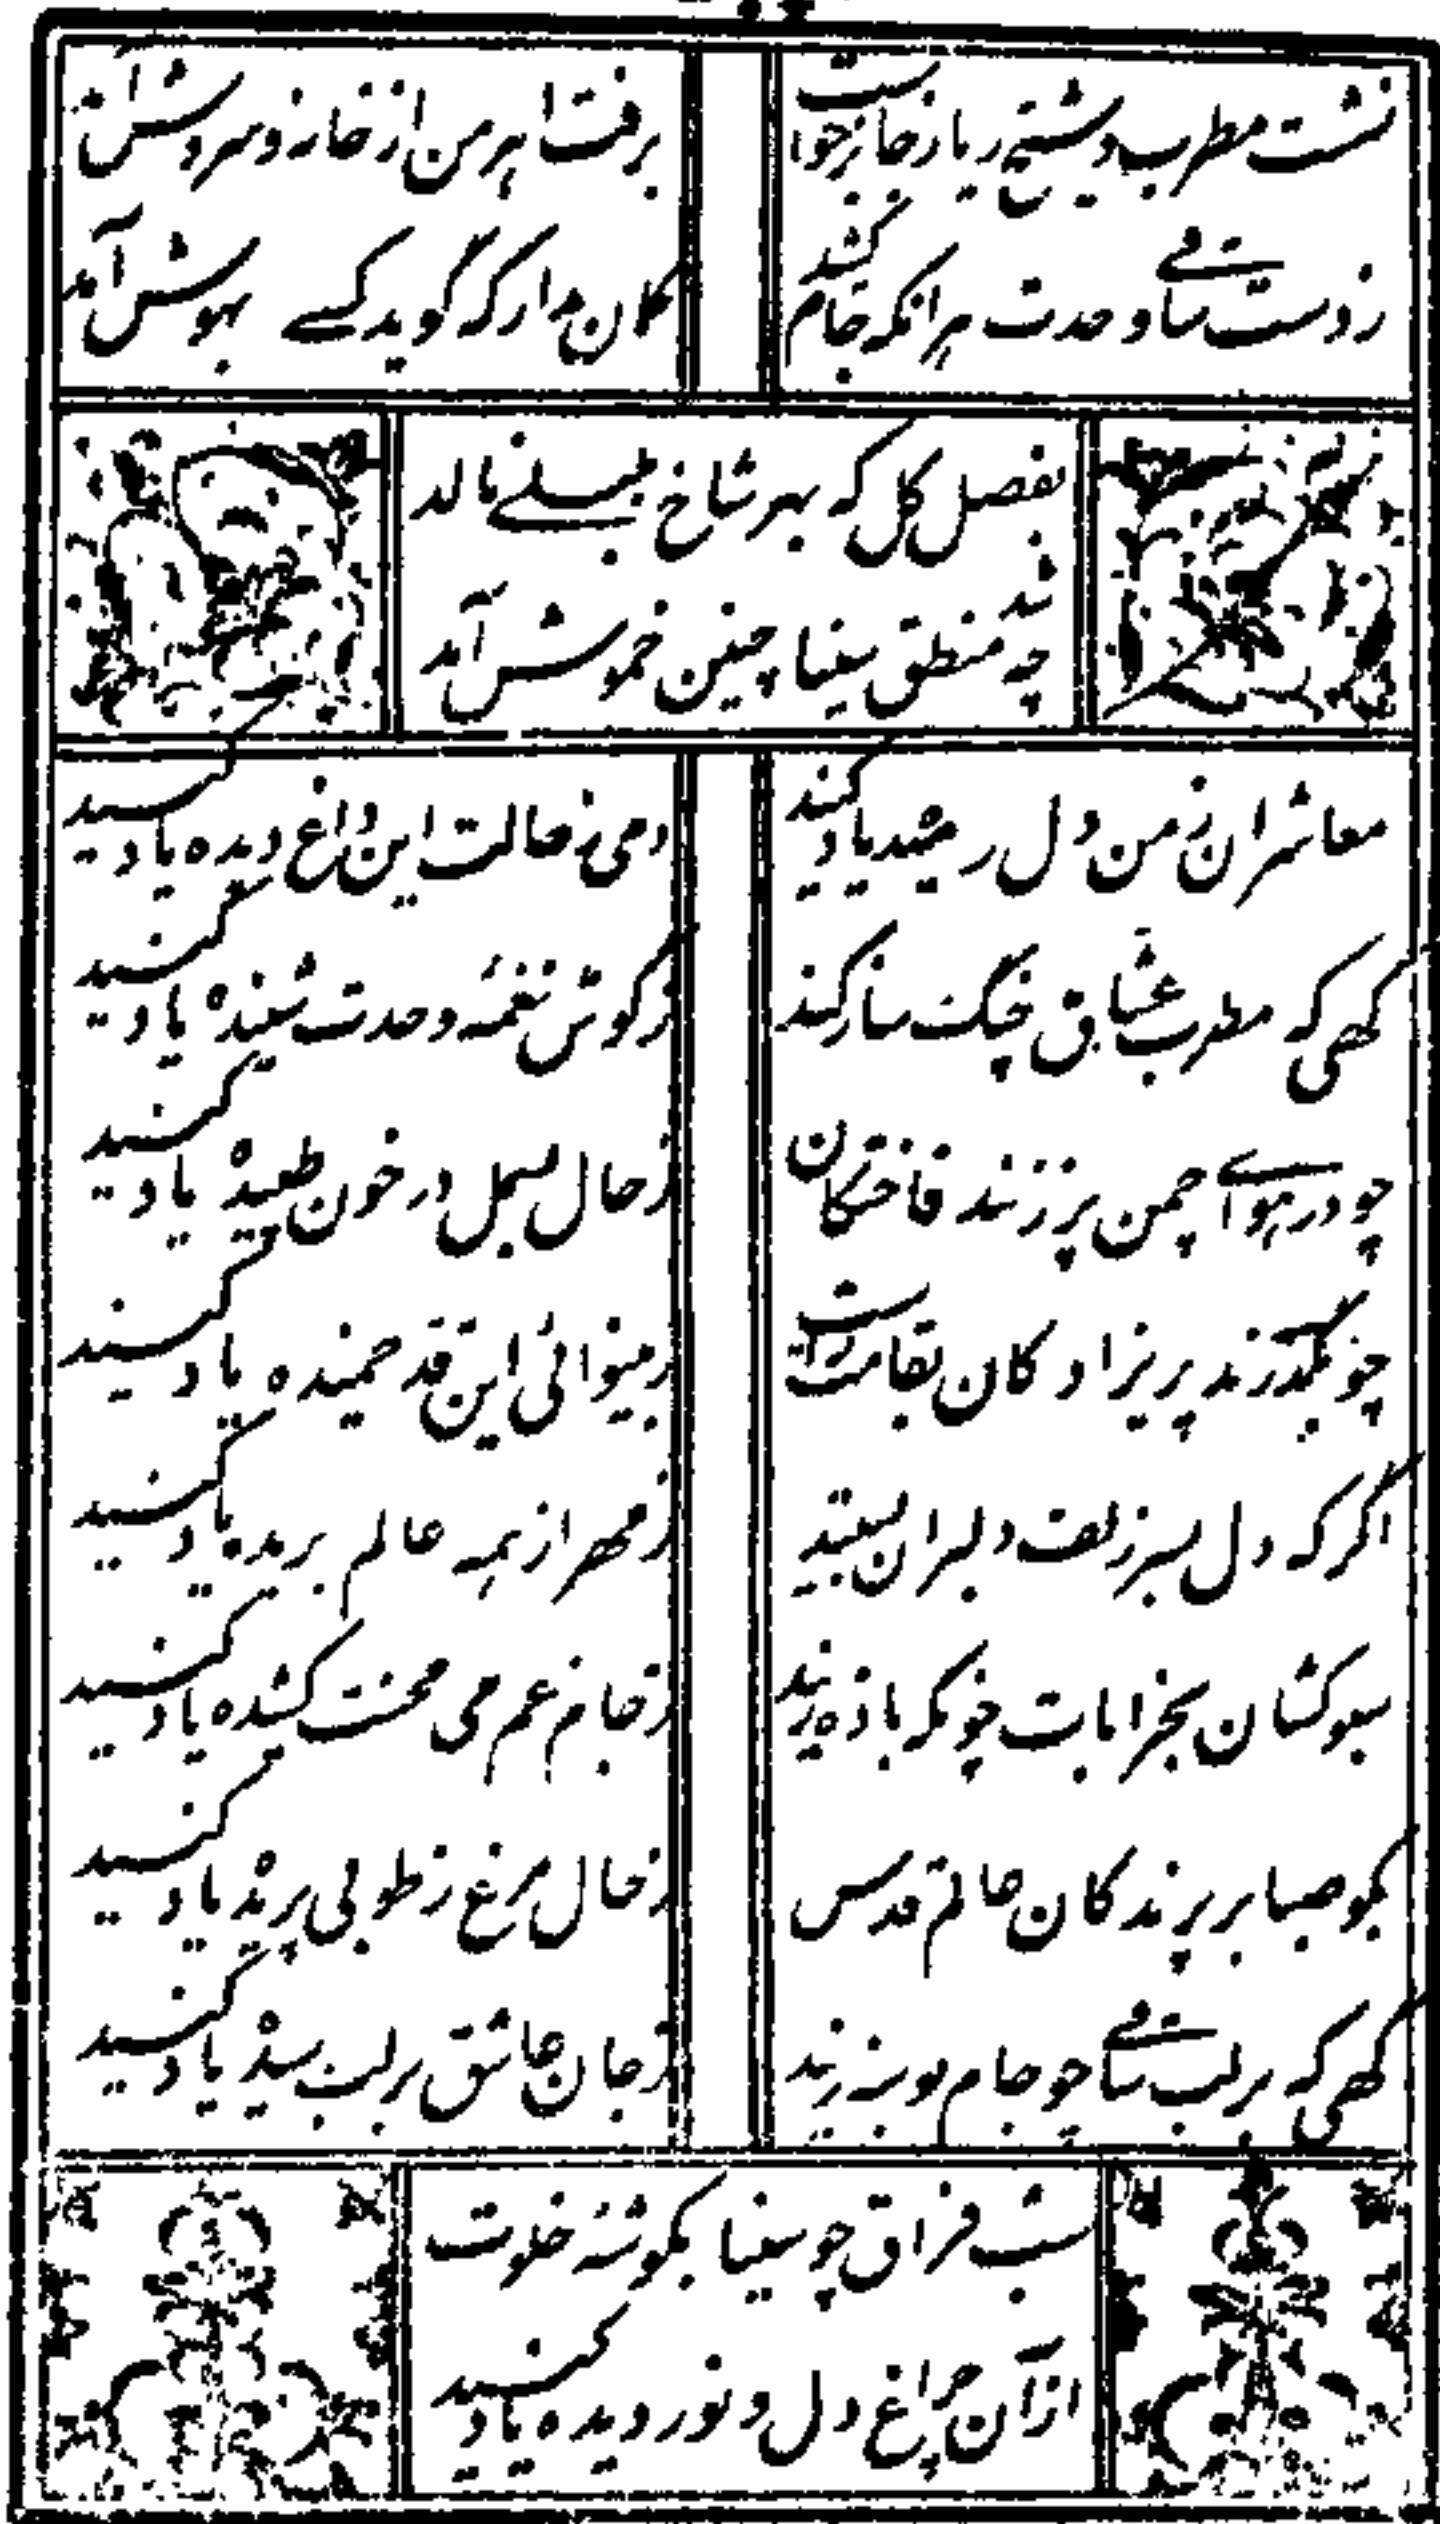 نشست مطرب و شیخ ریا ز خانه بخواست
برفت اهرمن از خانه و سروش آمد
ز دست ساقی وحدت هرانکه جام کشد
کان مدار که گوید کسے بهوش آمد
بفصل کل که بهر شاخ بلبلے نالد
چه شد منطق سینا چنین خموش آمد
معاشران ز من دل رمیده یاد کنید
دمی ز حالت این داغ دیده یاد کنید
کهی که مطرب عشاق چنک ساز کند
ز کوش نغمهٔ وحدت شنیده یاد کنید
چو در هواے چمن پر زنند فاختکان
ز حال بسمل در خون طپیده یاد کنید
چو بگذرند پریزاد کان بقامت راست
ز بینوائی این قد خمیده یاد کنید
اکر که دل بسر زلف دلبران بستید
ز مهر از همه عالم بریده یاد کنید
سبو کشان بخرابات چونکه باده زنید
ز جام غم می محنت کشیده یاد کنید
بکو صبا بر پرندکان عالم قدس
ز حال مرغ ز طوبی پریده یاد کنید
کهی که بر لب ساقی چو جام بوسه زنید
ز جان عاشق بر لب رسیده یاد کنید
شب فراق چو سینا بکوشهٔ خلوت
از آن چراغ دل و نور دیده یاد کنید